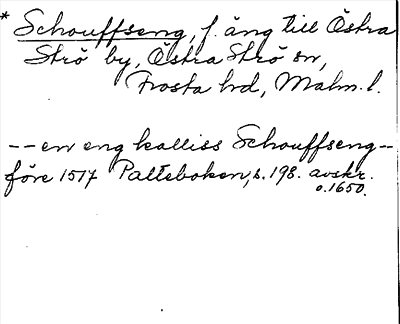 * Schouffseng, f. äng till Östra
Strö by, Östra Strö sn,
Frosta hd, Malm. l.
-- en eng kalliss Schouffseng --
före 1517 Palteboken, s. 198. avskr.
o. 1650.